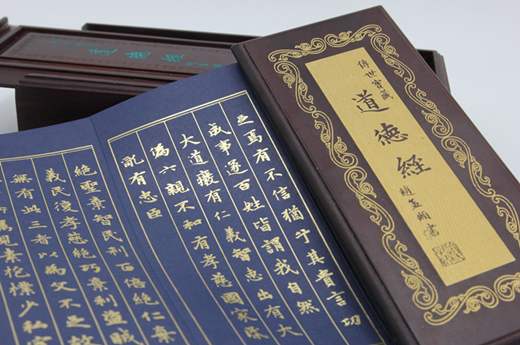 傳世寶藏
道德經
趙孟頫書
焉有不信猶乎其貴言功
成事遂百姓皆謂我自然
大道廢有仁義智惠出有大
偽六親不和有孝慈國家昏
亂有忠臣
絕聖棄智民利百倍絕仁棄
義民復孝慈絕巧棄利盜賊
無有此三者以為文不足
屬見素抱樸少私